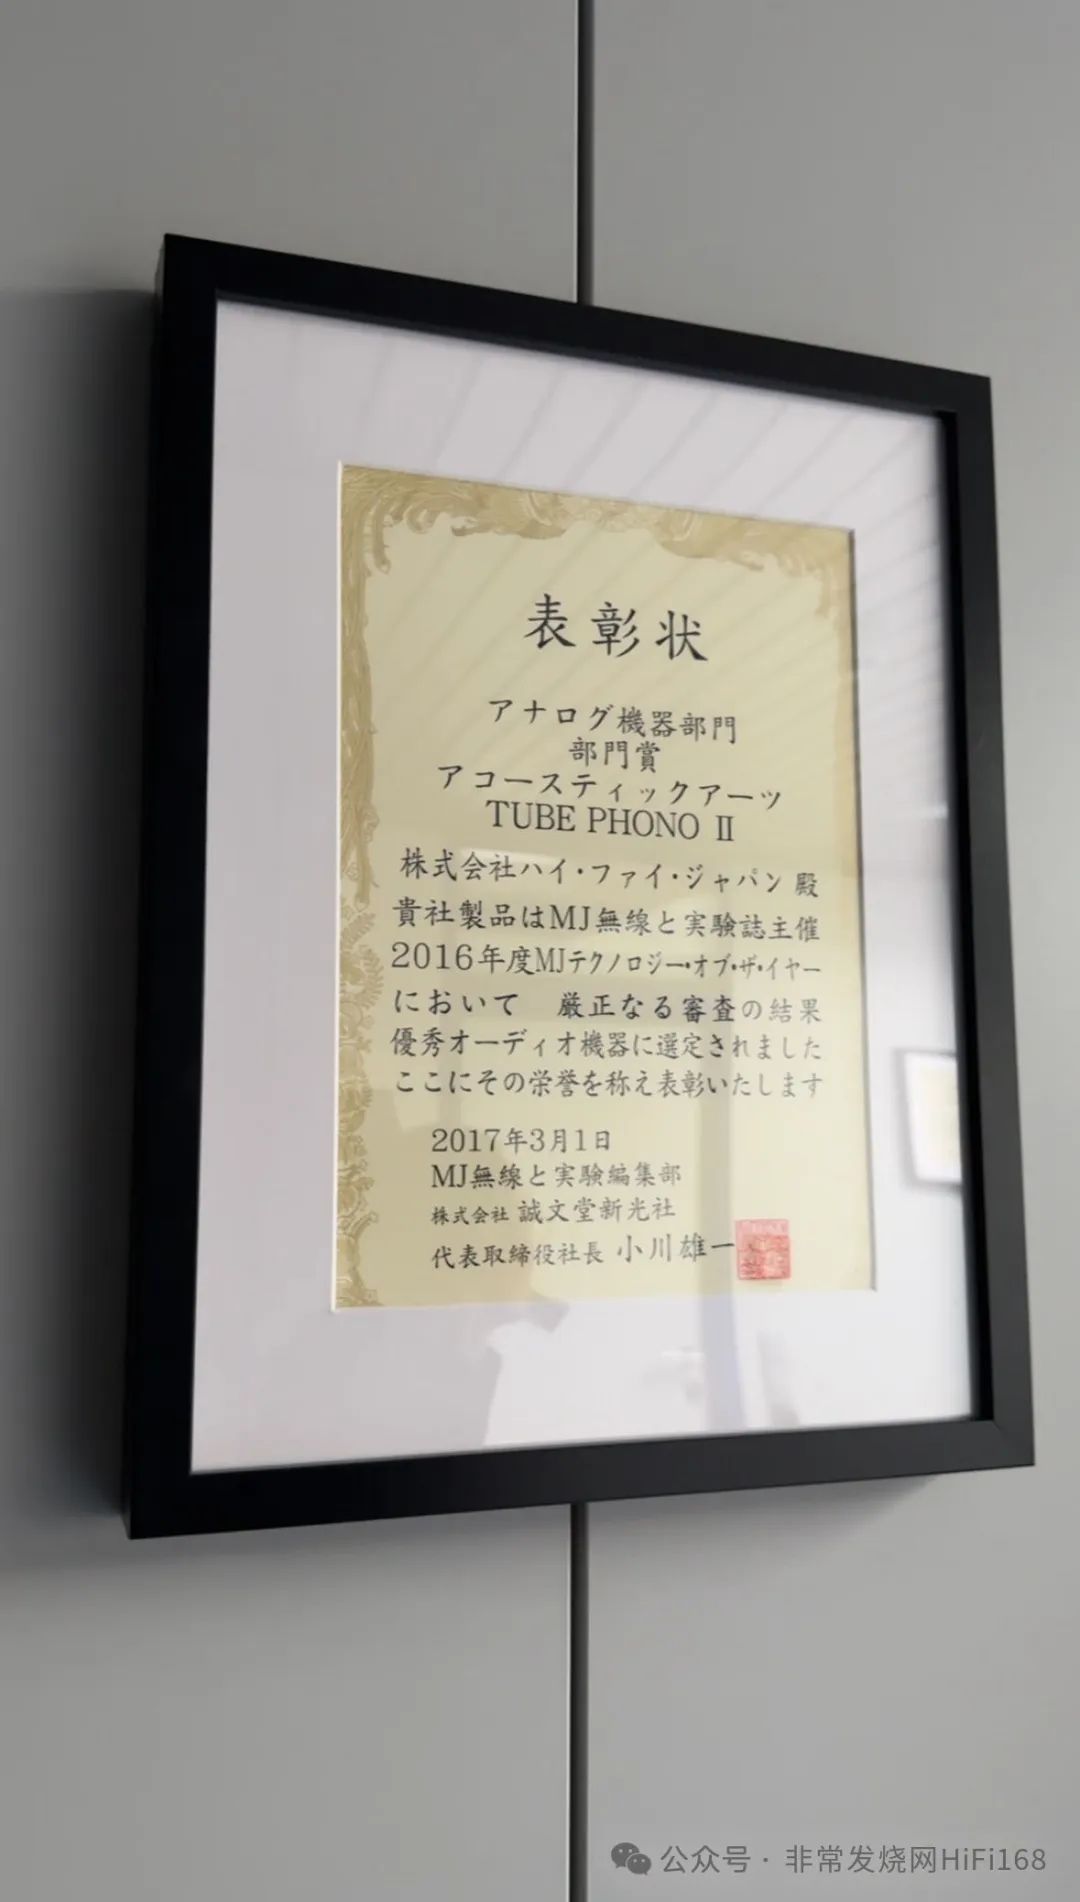 表彰状
アナログ機器部門
部門賞
アコースティックアーツ
TUBE PHONO Ⅱ
株式会社ハイ・ファイ・ジャパン 殿
貴社製品はMJ無線と実験誌主催
2016年度MJテクノロジー・オブ・ザ・イヤー
において　厳正なる審査の結果
優秀オーディオ機器に選定されました
ここにその栄誉を称え表彰いたします
2017年3月1日
MJ無線と実験編集部
株式会社 誠文堂新光社
代表取締役社長 小川雄一
公众号・非常发烧网HiFi168